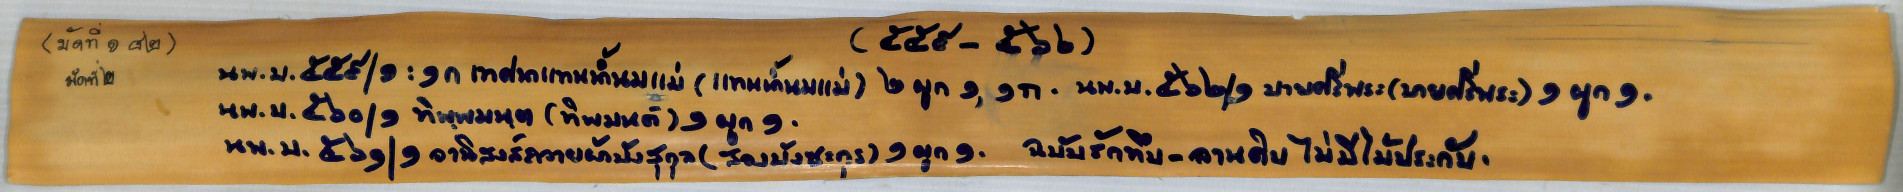 (มัดที่ ๑๔๒) (๕๕๙ - ๕๖๒)
มัดที่ ๒
นพ.บ. ๕๕๙/๑ : ๑ก เทศนาแทนน้ำนมแม่ (แทนน้ำนมแม่) ๒ ผูก ๑, ๑ก. นพ.บ. ๕๖๒/๑ บายศรีพระ (บายศรีพระ) ๑ ผูก ๑.
นพ.บ. ๕๖๐/๑ ทิพฺพมนฺต (ทิพมนต์) ๑ ผูก ๑.
นพ.บ. ๕๖๑/๑ อานิสงส์ถวายผ้าบังสุกุล (สองบังสะกุร) ๑ ผูก ๑. ฉบับรักทึบ - ลานดิบ ไม่มีไม้ประกับ.